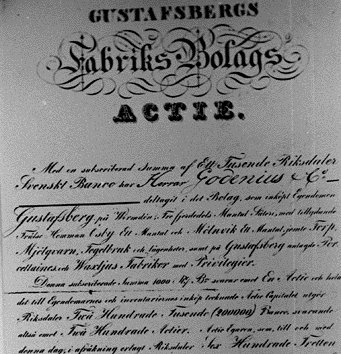 GUSTAFSBERGS
Fabriks Bolags
ACTIE.
Med en subscriberad summa af Ett Tusende Riksdaler
Svenskt Banco har Herrar Godenius & Co
deltagit i det Bolag, som inköpt Egendomen
Gustafsberg, på Wermdön; Tre fjerdedels Mantal Säteri, med tillydande
Frälse Hemman Osby Ett Mantal och Mölnvik Ett Mantal, jemte Torp,
Mjölqvarn, Tegelbruk och lägenheter, samt på Gustafsberg anlagde Por-
cellaines och Waxljus Fabriker med Privilegier.
Denna subscriberade summa 1000 Rd. Bo svarar emot En Actie och
det till Egendomarnes och inventariernes inköp tecknade Actie Capitalet utgör
Riksdaler Två Hundrade Tusende (200000) Banco, svarande
altså emot Två Hundrade Actier. Actie Egaren, som, till och med
denna dag, i afräkning erlagt Riksdaler Sex Hundrade Tretton